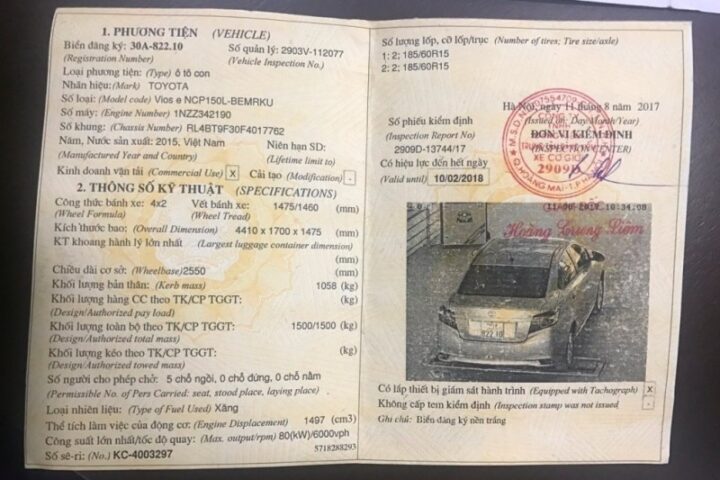 1. PHƯƠNG TIỆN (VEHICLE)
Biển đăng ký: 30A-822.10
(Registration Number)
Số quản lý: 2903V-112077
(Vehicle Inspection No.)
Loại phương tiện: (Type) ô tô con
Nhãn hiệu: (Mark) TOYOTA
Số loại: (Model code) Vios e NCP150L-BEMRKU
Số máy: (Engine Number) 1NZZ342190
Số khung: (Chassis Number) RL4BT9F30F4017762
Năm, Nước sản xuất: 2015, Việt Nam
(Manufactured Year and Country)
Niên hạn SD:
(Lifetime limit to)
Kinh doanh vận tải (Commercial Use) X Cải tạo (Modification) -
2. THÔNG SỐ KỸ THUẬT (SPECIFICATIONS)
Công thức bánh xe: 4x2
(Wheel Formula)
Vết bánh xe: 1475/1460 (mm)
(Wheel Tread)
Kích thước bao: (Overall Dimension) 4410 x 1700 x 1475 (mm)
KT khoang hành lý lớn nhất (Largest luggage container dimension)
(mm)
Chiều dài cơ sở: (Wheelbase) 2550 (mm)
Khối lượng bản thân: (Kerb mass) 1058 (kg)
Khối lượng hàng CC theo TK/CP TGGT: (kg)
(Design/Authorized pay load)
Khối lượng toàn bộ theo TK/CP TGGT: 1500/1500 (kg)
(Design/Authorized total mass)
Khối lượng kéo theo TK/CP TGGT: (kg)
(Design/Authorized towed mass)
Số người cho phép chở: 5 chỗ ngồi, 0 chỗ đứng, 0 chỗ nằm
(Permissible No. of Pers Carried: seat, stood place, laying place)
Loại nhiên liệu: (Type of Fuel Used) Xăng
Thể tích làm việc của động cơ: (Engine Displacement) 1497 (cm3)
Công suất lớn nhất/tốc độ quay: (Max. output/rpm) 80(kW)/6000vph
Số sê-ri: (No.) KC-4003297
5718288293
Số lượng lốp, cỡ lốp/trục (Number of tires; Tire size/axle)
1: 2; 185/60R15
2: 2; 185/60R15
Hà Nội, ngày 11 tháng 8 năm 2017
(Issued on: Day/Month/Year)
Số phiếu kiểm định
(Inspection Report No)
2909D-13744/17
Có hiệu lực đến hết ngày
(Valid until) 10/02/2018
ĐƠN VỊ KIỂM ĐỊNH
(INSPECTION CENTER)
XE CƠ GIỚI
2909D
Q HOÀNG MAI
Hoàng Trung Liêm
822 10
Có lắp thiết bị giám sát hành trình (Equipped with Tachograph) X
Không cấp tem kiểm định (Inspection stamp was not issued) -
Ghi chú: Biển đăng ký nền trắng